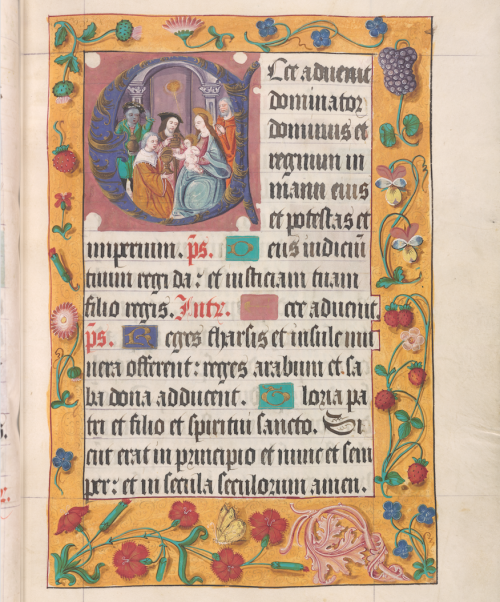 ECce aduenit
dominator
dominus et
regnum in
manu eius
et potestas et
imperium. ps. Deus iudiciū
tuum regi da: et iusticiam tuam
filio regis. Intr. Ecce aduenit.
ps. Reges tharsis et insule mu
nera offerent: reges arabum et sa
ba dona adducent. Gloria pa
tri et filio et spiritui sancto. Si
cut erat in principio et nunc et sem
per: et in secula seculorum amen.